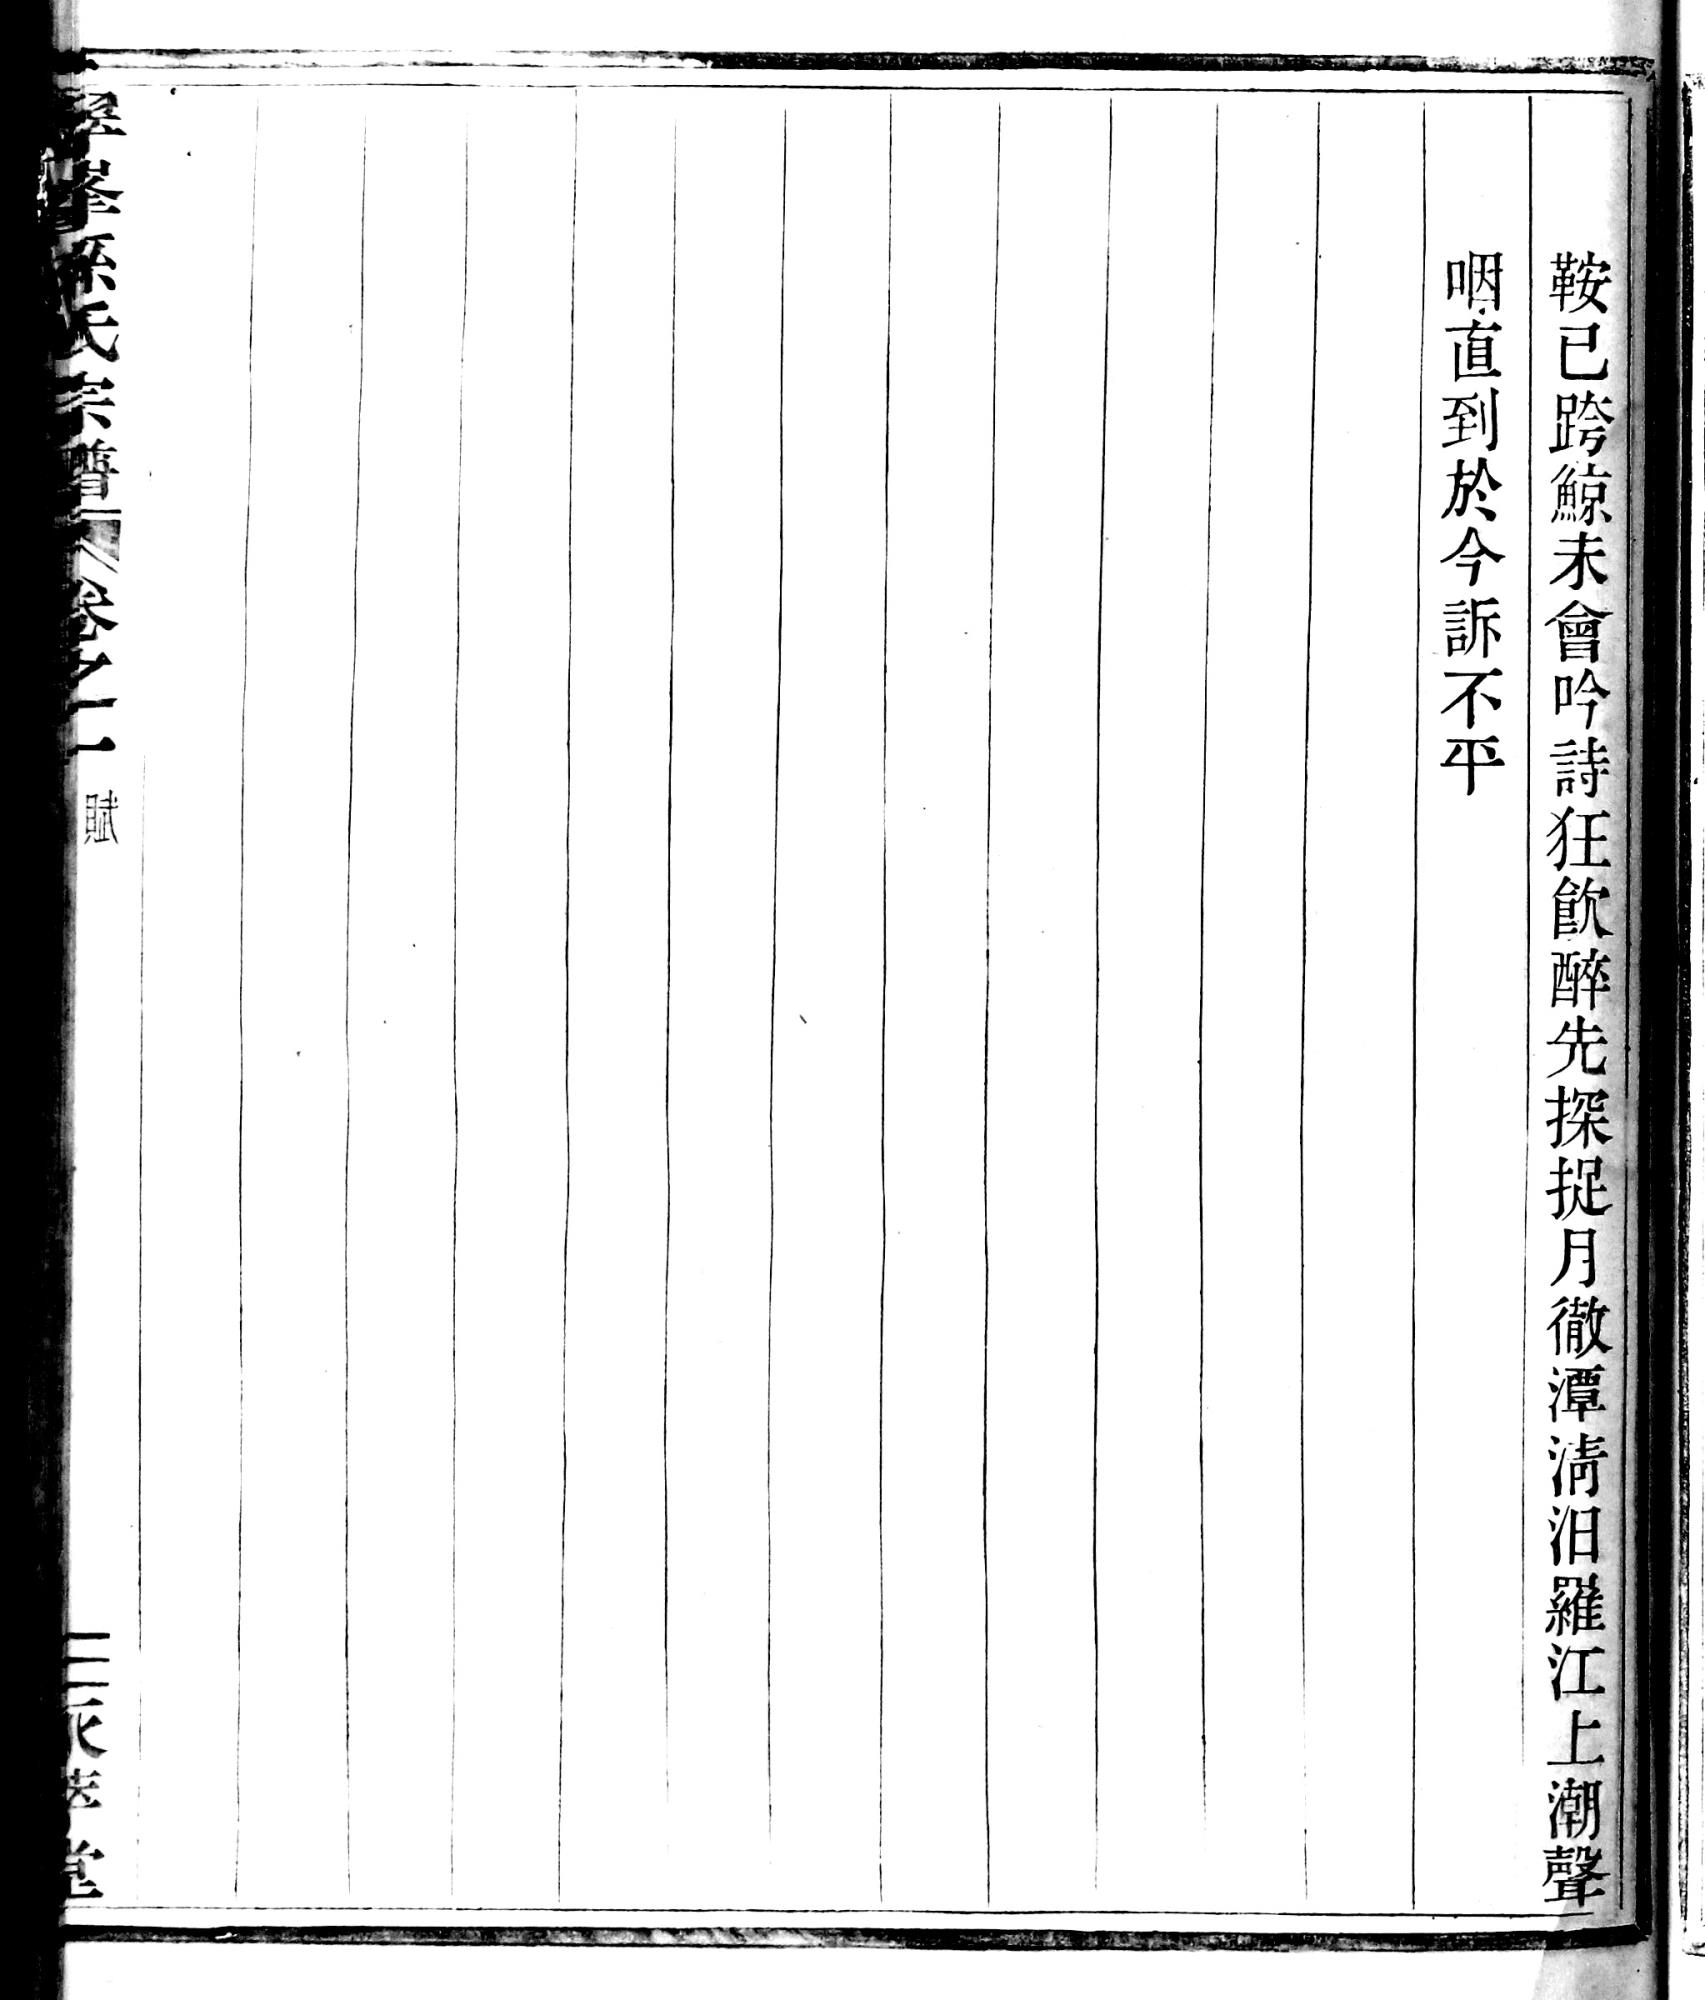 鞍已跨鯨未會吟詩狂飲醉先探捉月徹潭淸汨羅江上潮聲
咽直到於今訴不平
峯孫氏宗譜 卷之一 賦